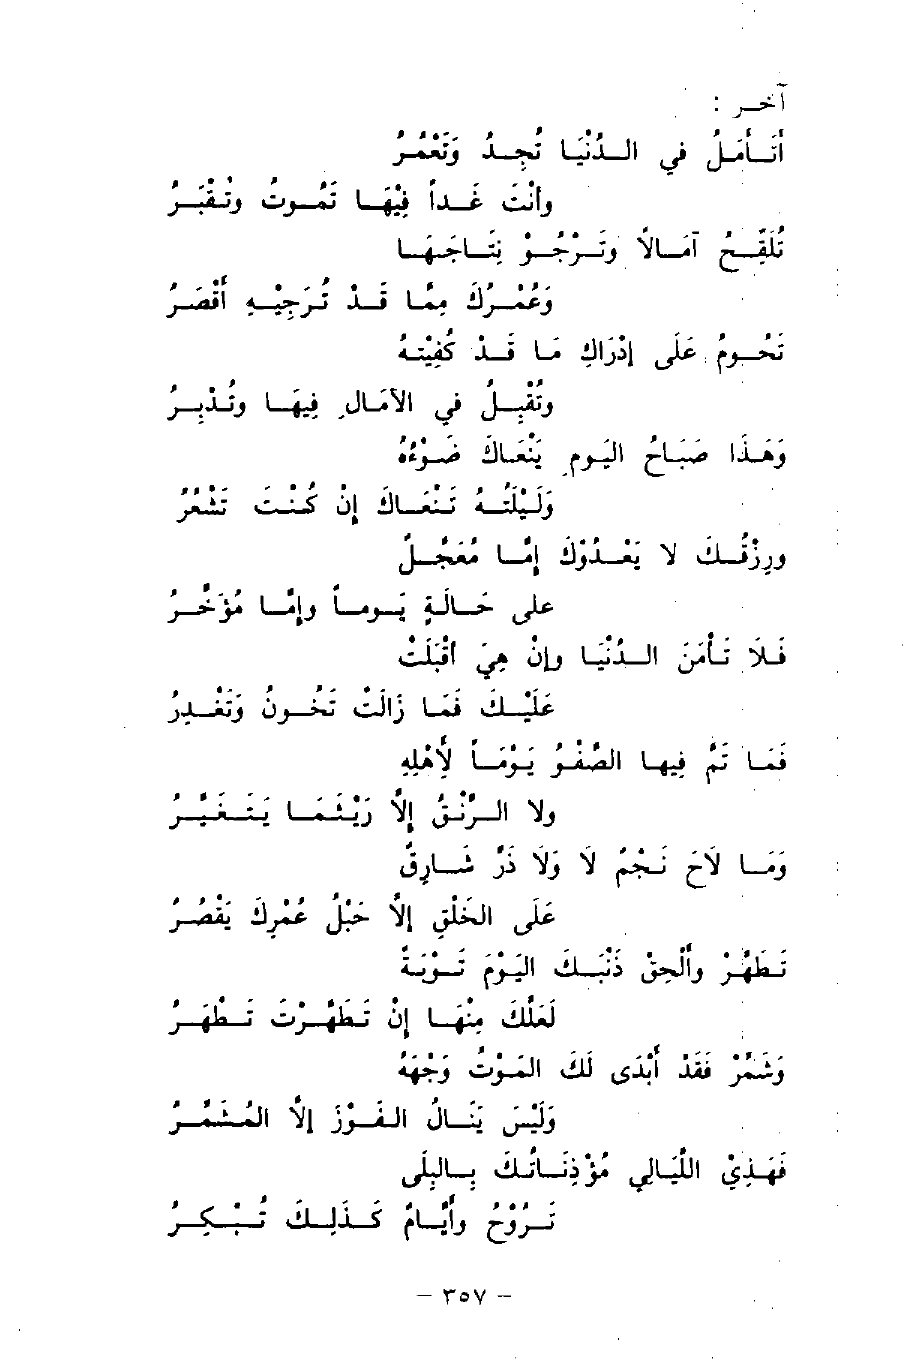 آخر :
أَتَأْمَلُ في الدُّنْيَا تُجِدُ وَتَعْمُرُ
وأنْتَ غَداً فِيْهَا تَمُوتُ وتُقْبَرُ
تُلَقِّحُ آمَالاً وتَرْجُوْ نِتَاجَهَا
وَعُمْرُكَ مِمَّا قَدْ تُرَجِيْهِ أَقْصَرُ
تَحُومُ عَلَى إدْرَاكِ مَا قَدْ كُفِيْتهُ
وتُقْبِلُ في الآمَالِ فِيهَا وتُدْبِرُ
وَهَذَا صَبَاحُ اليَومِ يَنْعَاكَ ضَوْءُهُ
وَلَيْلَتُهُ تَنْعَاكَ إنْ كُنْتَ تَشْعُرُ
ورِزْقُكَ لا يَعْدُوْكَ إمَّا مُعَجَّلٌ
على حَالَةٍ يَوماً وإمَّا مُؤَخَّرُ
فَلاَ تَأْمَنَ الدُّنْيَا وإنْ هِيَ أقْبَلَتْ
عَلَيْكَ فَمَا زَالَتْ تَخُونُ وَتَغْدِرُ
فَمَا تَمَّ فِيها الصَّفْوُ يَوْمَاً لأَهْلِهِ
ولا الرَّنْقُ إلاَّ رَيْثَمَا يَتَغَيَّرُ
وَمَا لاَحَ نَجْمٌ لاَ وَلاَ ذَرَّ شَارِقٌ
عَلَى الخَلْقِ إلاَّ حَبْلُ عُمْرِكَ يَقْصُرُ
تَطَهَّرْ وأَلْحِقْ ذَنْبَكَ اليَوْمَ تَوْبَةً
لَعَلَّكَ مِنْهَا إنْ تَطَهَّرْتَ تَطْهَرُ
وَشَمِّرْ فَقَدْ أَبْدَى لَكَ المَوْتُ وَجْهَهُ
وَلَيْسَ يَنَالُ الفَوْزَ إلاَّ المُشَمِّرُ
فَهَذِيْ اللَّيَالِي مُؤْذِنَاتُكَ بِالبِلَى
تَرُوْحُ وأَيَّامٌ كَذَلِكَ تُبْكِرُ
– ٣٥٧ –